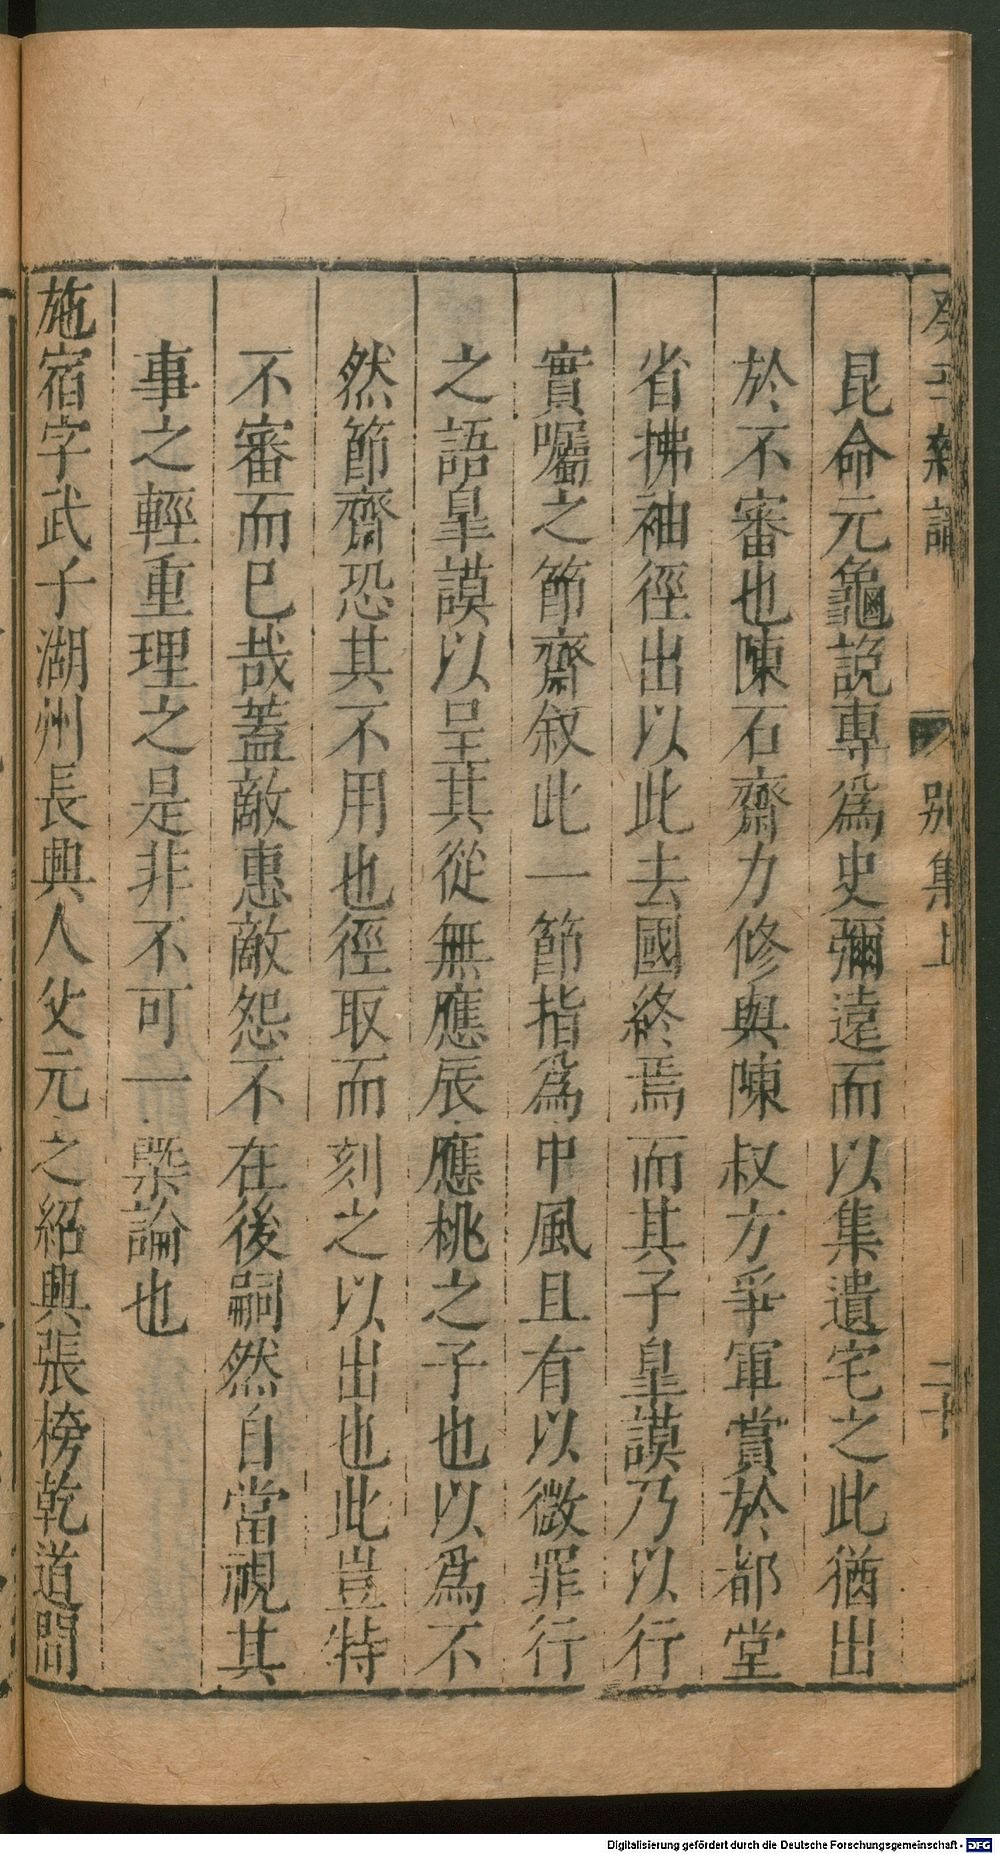 癸辛雜識 別集上 二十
昆命元龜說專爲史彌遠而以集遺宅之此猶出
於不審也陳石齋力修與陳叔方爭軍賞於都堂
省拂袖徑出以此去國終焉而其子皇謨乃以行
實囑之節齋叙此一節指爲中風且有以微罪行
之語皇謨以呈其從無應辰應桃之子也以爲不
然節齋恐其不用也徑取而刻之以出也此豈特
不審而已哉蓋敵惠敵怨不在後嗣然自當視其
事之輕重理之是非不可一槩論也
施宿字武子湖州長興人父元之紹興張榜乾道間
Digitalisierung gefördert durch die Deutsche Forschungsgemeinschaft - DFG